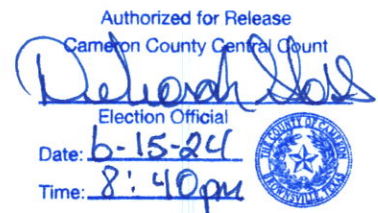 Authorized for Release
Cameron County Central Count
Deborah
Election Official
Date: 6-15-24
Time: 8:40pm
THE COUNTY OF CAMERON
BROWNSVILLE, TEXAS